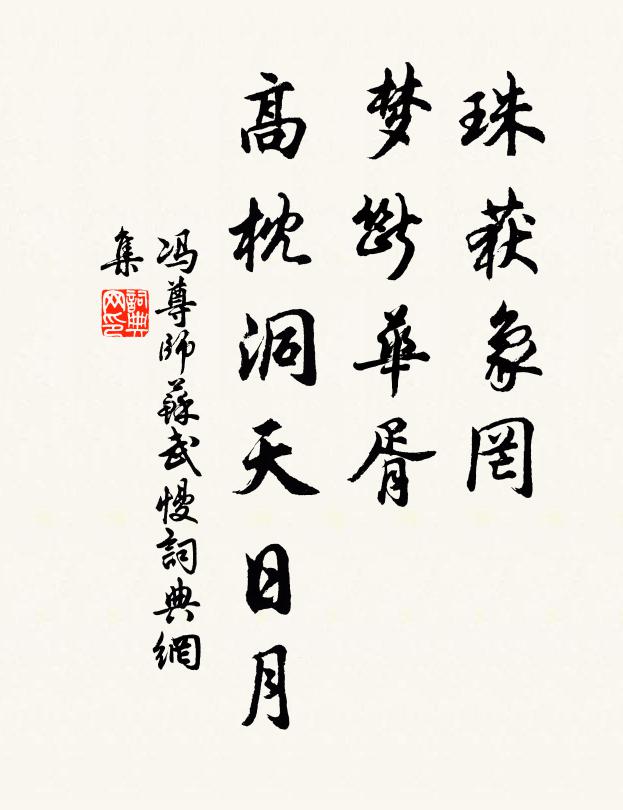 珠获象罔
梦断华胥
高枕洞天日月
冯尊師蘇武慢詞典網
集
詞典
网印